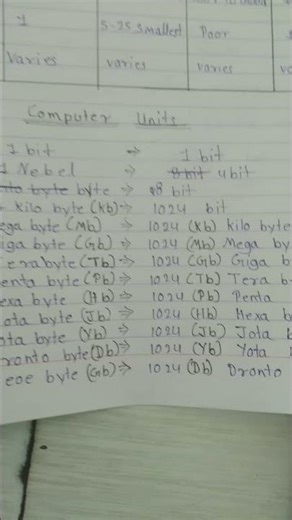 1 5-25 Smallest Poor
Varies varies varies
Computer Units
1 bit ⇒ 1 bit
1 Nebel ⇒ 8 bit 4 bit
byte byte ⇒ 8 bit
kilo byte (kb) ⇒ 1024 bit
ega byte (Mb) ⇒ 1024 (Kb) kilo byte
iga byte (Gb) ⇒ 1024 (Mb) Mega by
erabyte (Tb) ⇒ 1024 (Gb) Giga b
enta byte (Pb) ⇒ 1024 (Tb) Tera b
exa byte (Hb) ⇒ 1024 (Pb) Penta
ota byte (Jb) ⇒ 1024 (Hb) Hexa b
ota byte (Yb) ⇒ 1024 (Jb) Jota b
ronto byte (Db) ⇒ 1024 (Yb) Yota
eoe byte (Gb) ⇒ 1024 (Db) Dronto